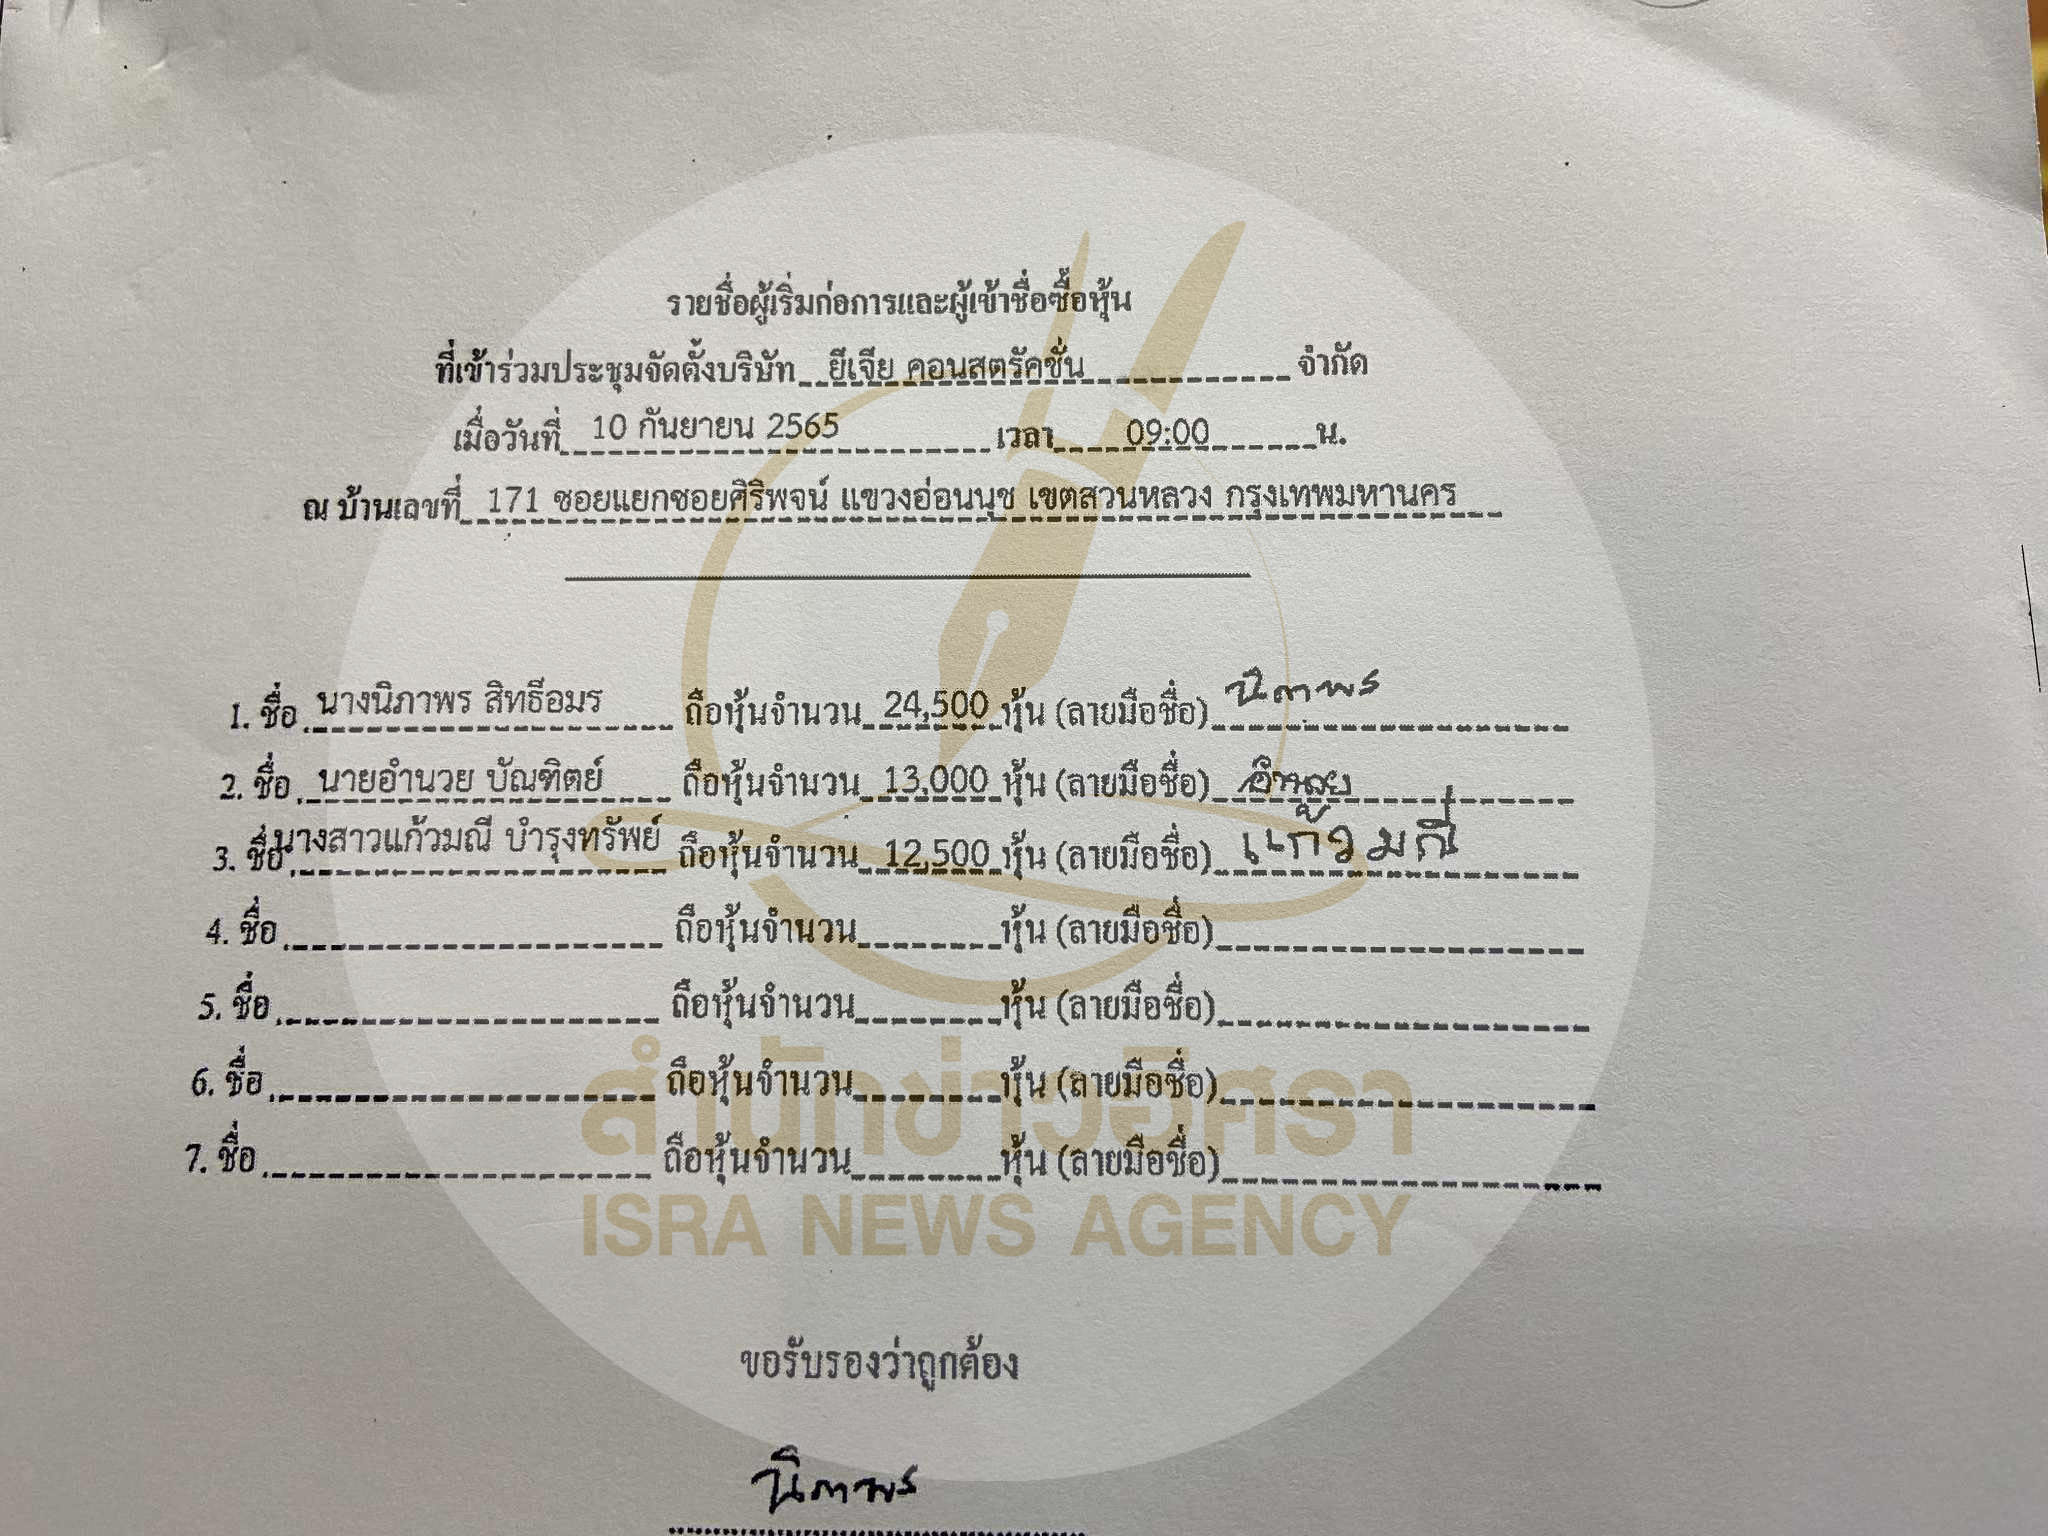 รายชื่อผู้เริ่มก่อการและผู้เข้าชื่อซื้อหุ้น
ที่เข้าร่วมประชุมจัดตั้งบริษัท ยีเจีย คอนสตรัคชั่น จำกัด
เมื่อวันที่ 10 กันยายน 2565 เวลา 09:00 น.
ณ บ้านเลขที่ 171 ซอยแยกซอยศิริพจน์ แขวงอ่อนนุช เขตสวนหลวง กรุงเทพมหานคร
1. ชื่อ นางนิภาพร สิทธีอมร ถือหุ้นจำนวน 24,500 หุ้น (ลายมือชื่อ) นิภาพร
2. ชื่อ นายอำนวย บัณฑิตย์ ถือหุ้นจำนวน 13,000 หุ้น (ลายมือชื่อ) อำนวย
3. ชื่อ นางสาวแก้วมณี บำรุงทรัพย์ ถือหุ้นจำนวน 12,500 หุ้น (ลายมือชื่อ) แก้วมณี
4. ชื่อ ถือหุ้นจำนวน หุ้น (ลายมือชื่อ)
5. ชื่อ ถือหุ้นจำนวน หุ้น (ลายมือชื่อ)
6. ชื่อ ถือหุ้นจำนวน หุ้น (ลายมือชื่อ)
7. ชื่อ ถือหุ้นจำนวน หุ้น (ลายมือชื่อ)
สำนักข่าวอิศรา
ISRA NEWS AGENCY
ขอรับรองว่าถูกต้อง
นิภาพร